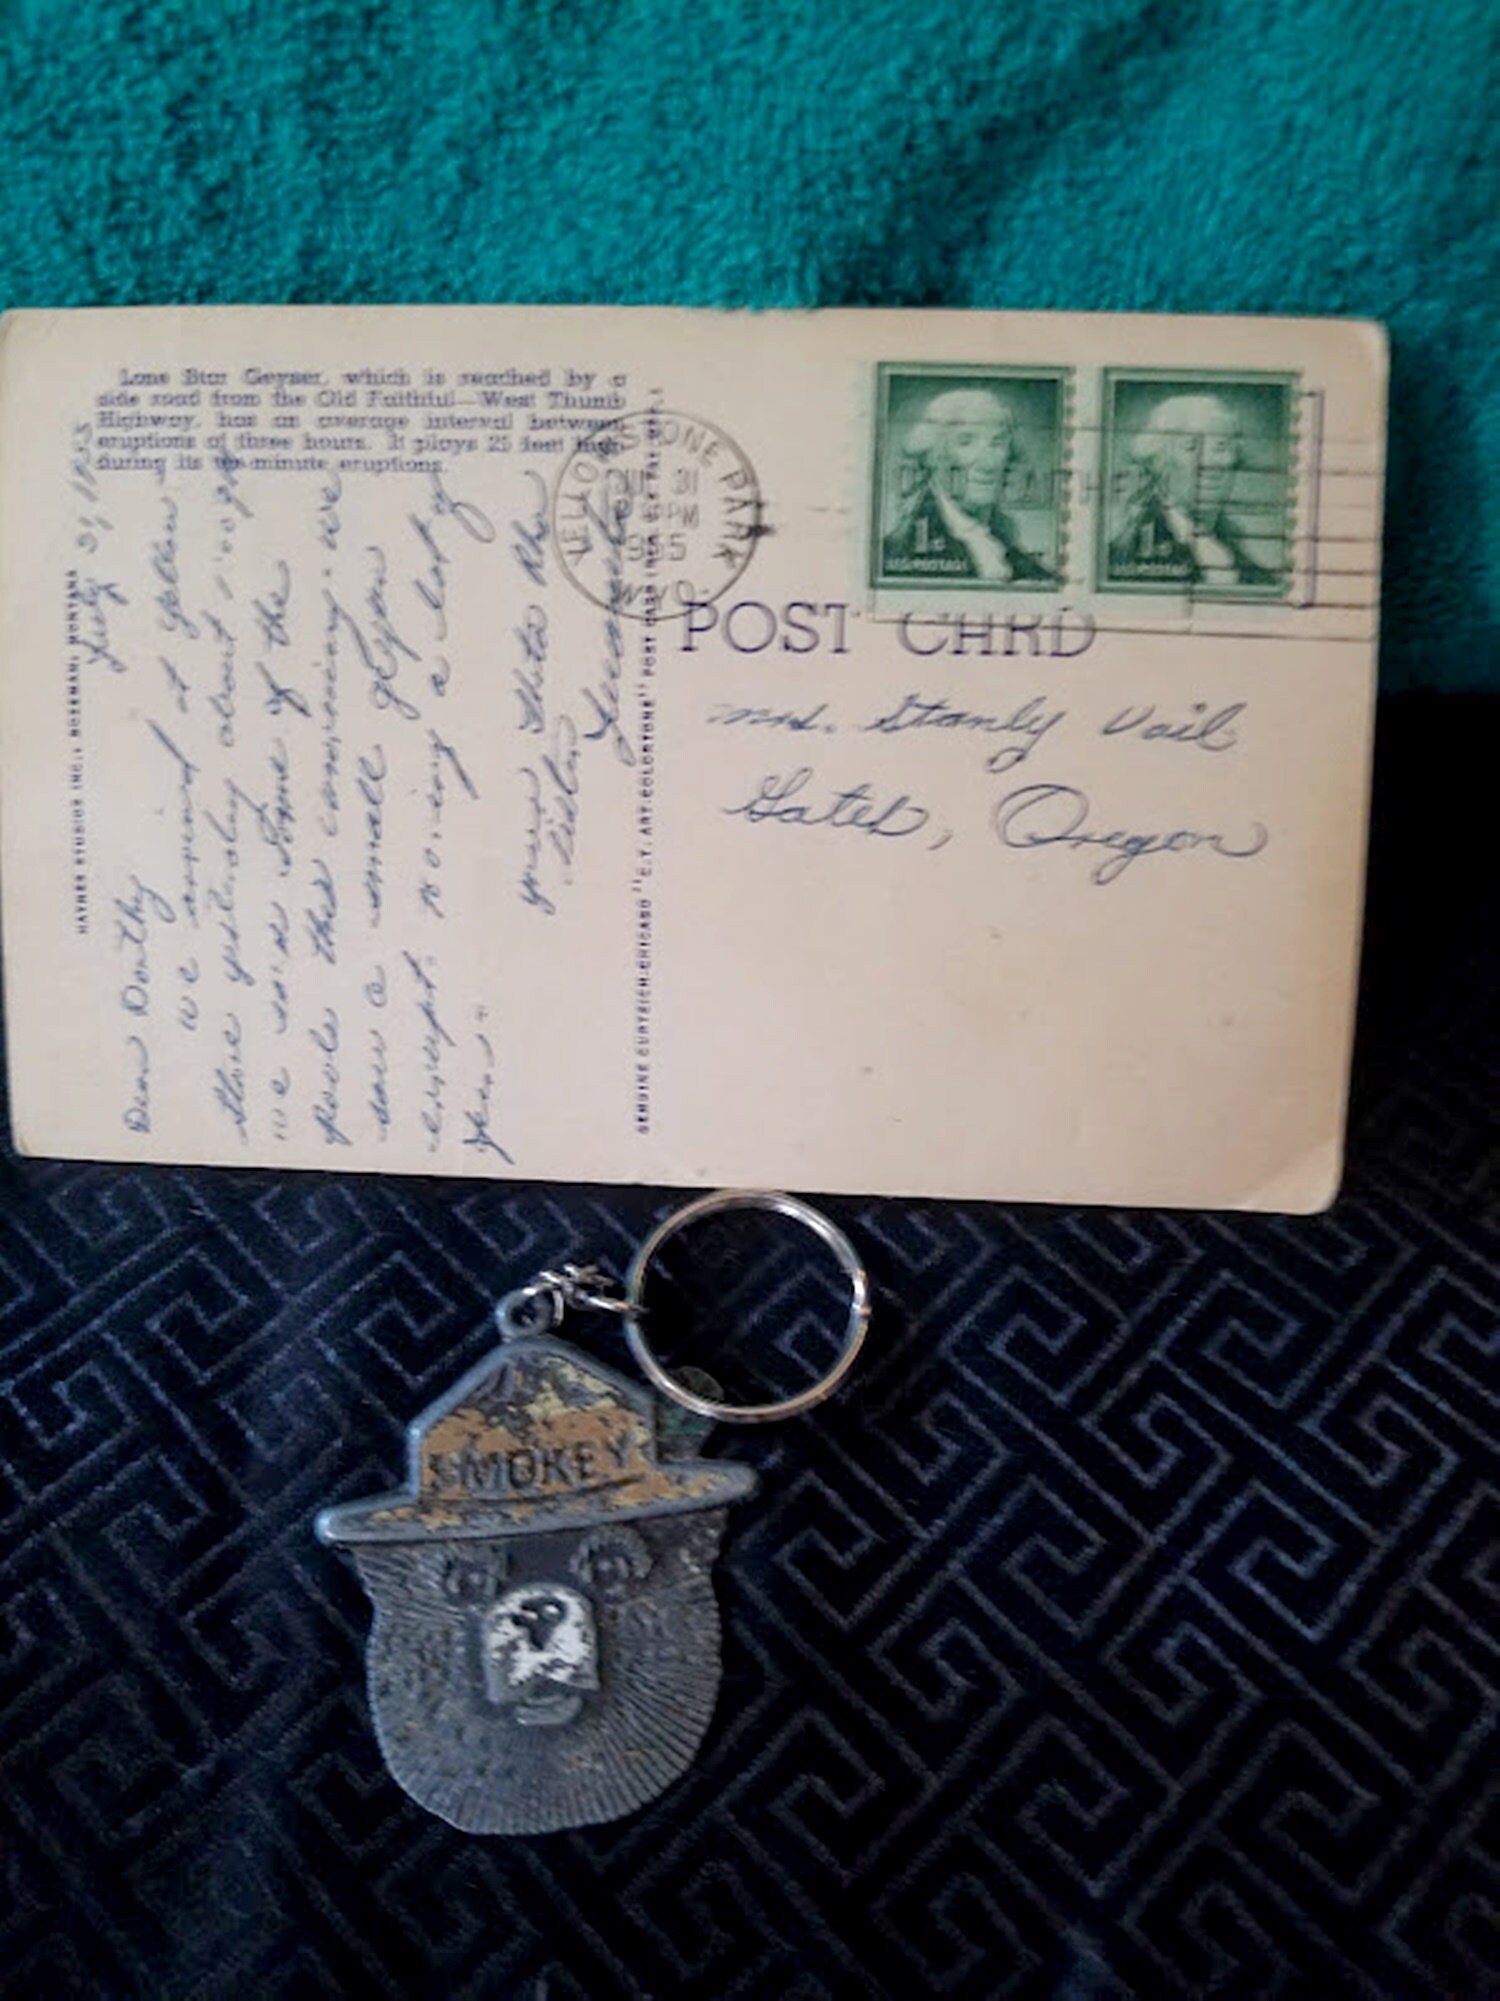 Lone Star Geyser, which is reached by a
side road from the Old Faithful—West Thumb
Highway, has an average interval between
eruptions of three hours. It plays 25 feet high
during its ten-minute eruptions.
HAYNES STUDIOS INC., BOZEMAN, MONTANA
July 31, 1955
Dear Dorthy
we arrived at yellow
stone yesterday about
we saw some of the
pools this morning. we
saw a small geyser
errupt.
your sister
GENUINE CURTEICH-CHICAGO "C.T. ART-COLORTONE" POST CARD
YELLOWSTONE PARK
JUL 31
PM
1955
WYO.
1¢
U.S. POSTAGE
1¢
U.S. POSTAGE
POST CARD
Mrs. Stanly Vail
Gates, Oregon
SMOKEY